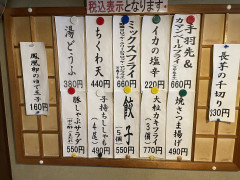 税込表示となります。
手羽先&
カマンベールフライ
660円
イカの塩辛
220円
ミックスフライ
660円
ちくわ天
440円
湯どうふ
380円
焼さつま揚げ
490円
大粒カキフライ
(3個)
770円
餃子
(5個)
550円
子持ちししゃも
(4尾)
490円
豚しゃぶサラダ
550円
長芋の千切り
330円
160円